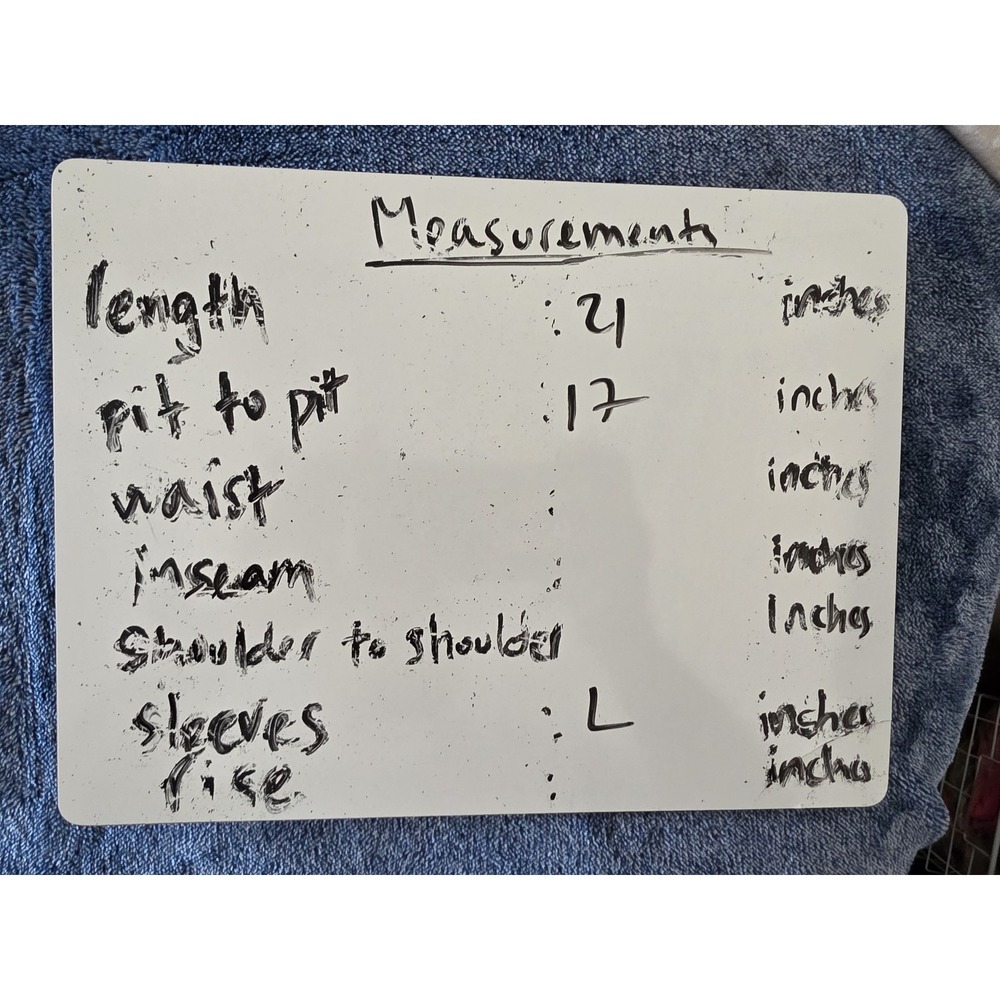 Measurements
length : 21 inches
pit to pit : 17 inches
waist : inches
inseam : inches
shoulder to shoulder Inches
sleeves : L inches
rise : inches